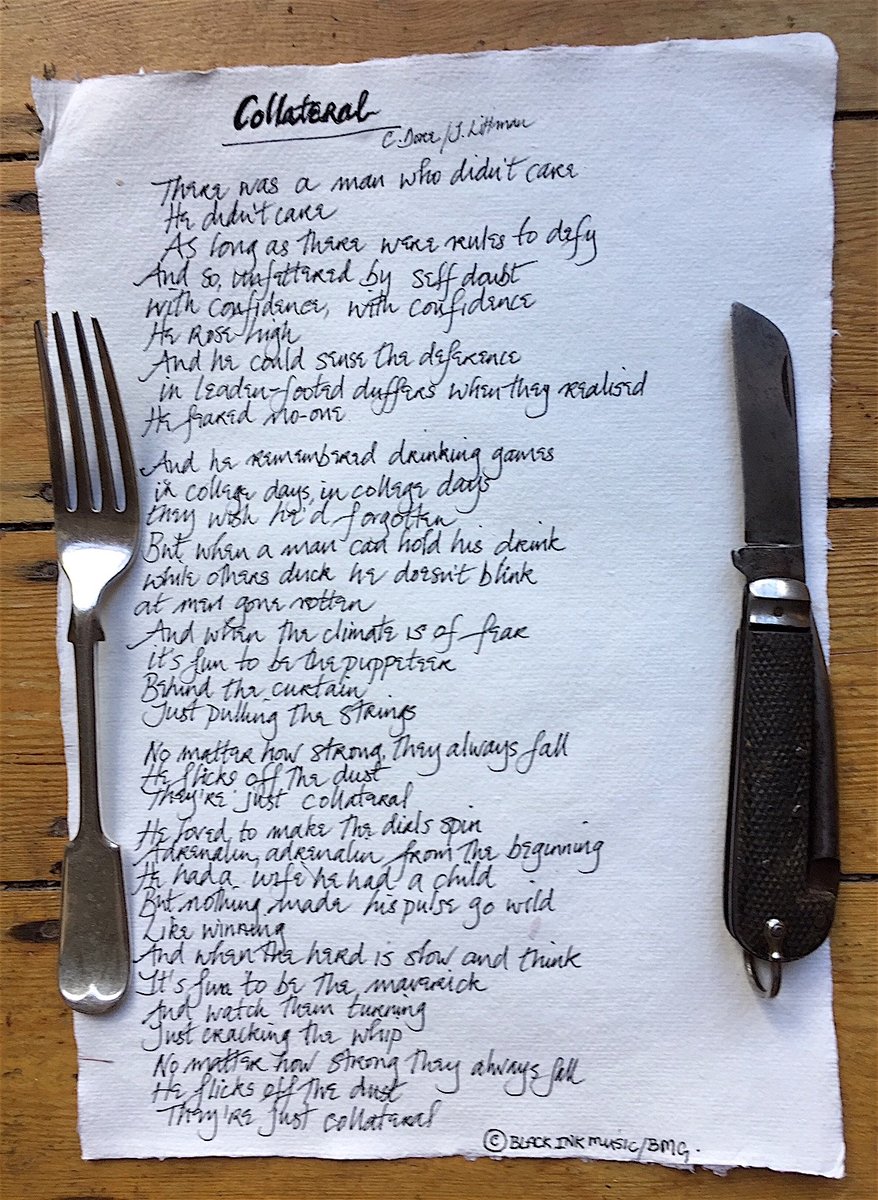 Collateral
C. Dore/J. Littman
There was a man who didn't care
He didn't care
As long as there were rules to defy
And so, unfettered by self doubt
with confidence, with confidence
He rose high
And he could sense the deference
in leaden-footed duffers when they realised
He feared no-one
And he remembered drinking games
in college days, in college days
they wish he'd forgotten
But when a man can hold his drink
while others duck he doesn't blink
at men gone rotten
And when the climate is of fear
it's fun to be the puppeteer
Behind the curtain
Just pulling the strings
No matter how strong, they always fall
He flicks off the dust
They're just collateral
He loved to make the dials spin
Adrenalin, adrenalin from the beginning
He had a wife he had a child
But nothing made his pulse go wild
Like winning
And when the herd is slow and think
It's fun to be the maverick
And watch them turning
Just cracking the whip
No matter how strong they always fall
He flicks off the dust
They're just collateral
© BLACK INK MUSIC/BMG.